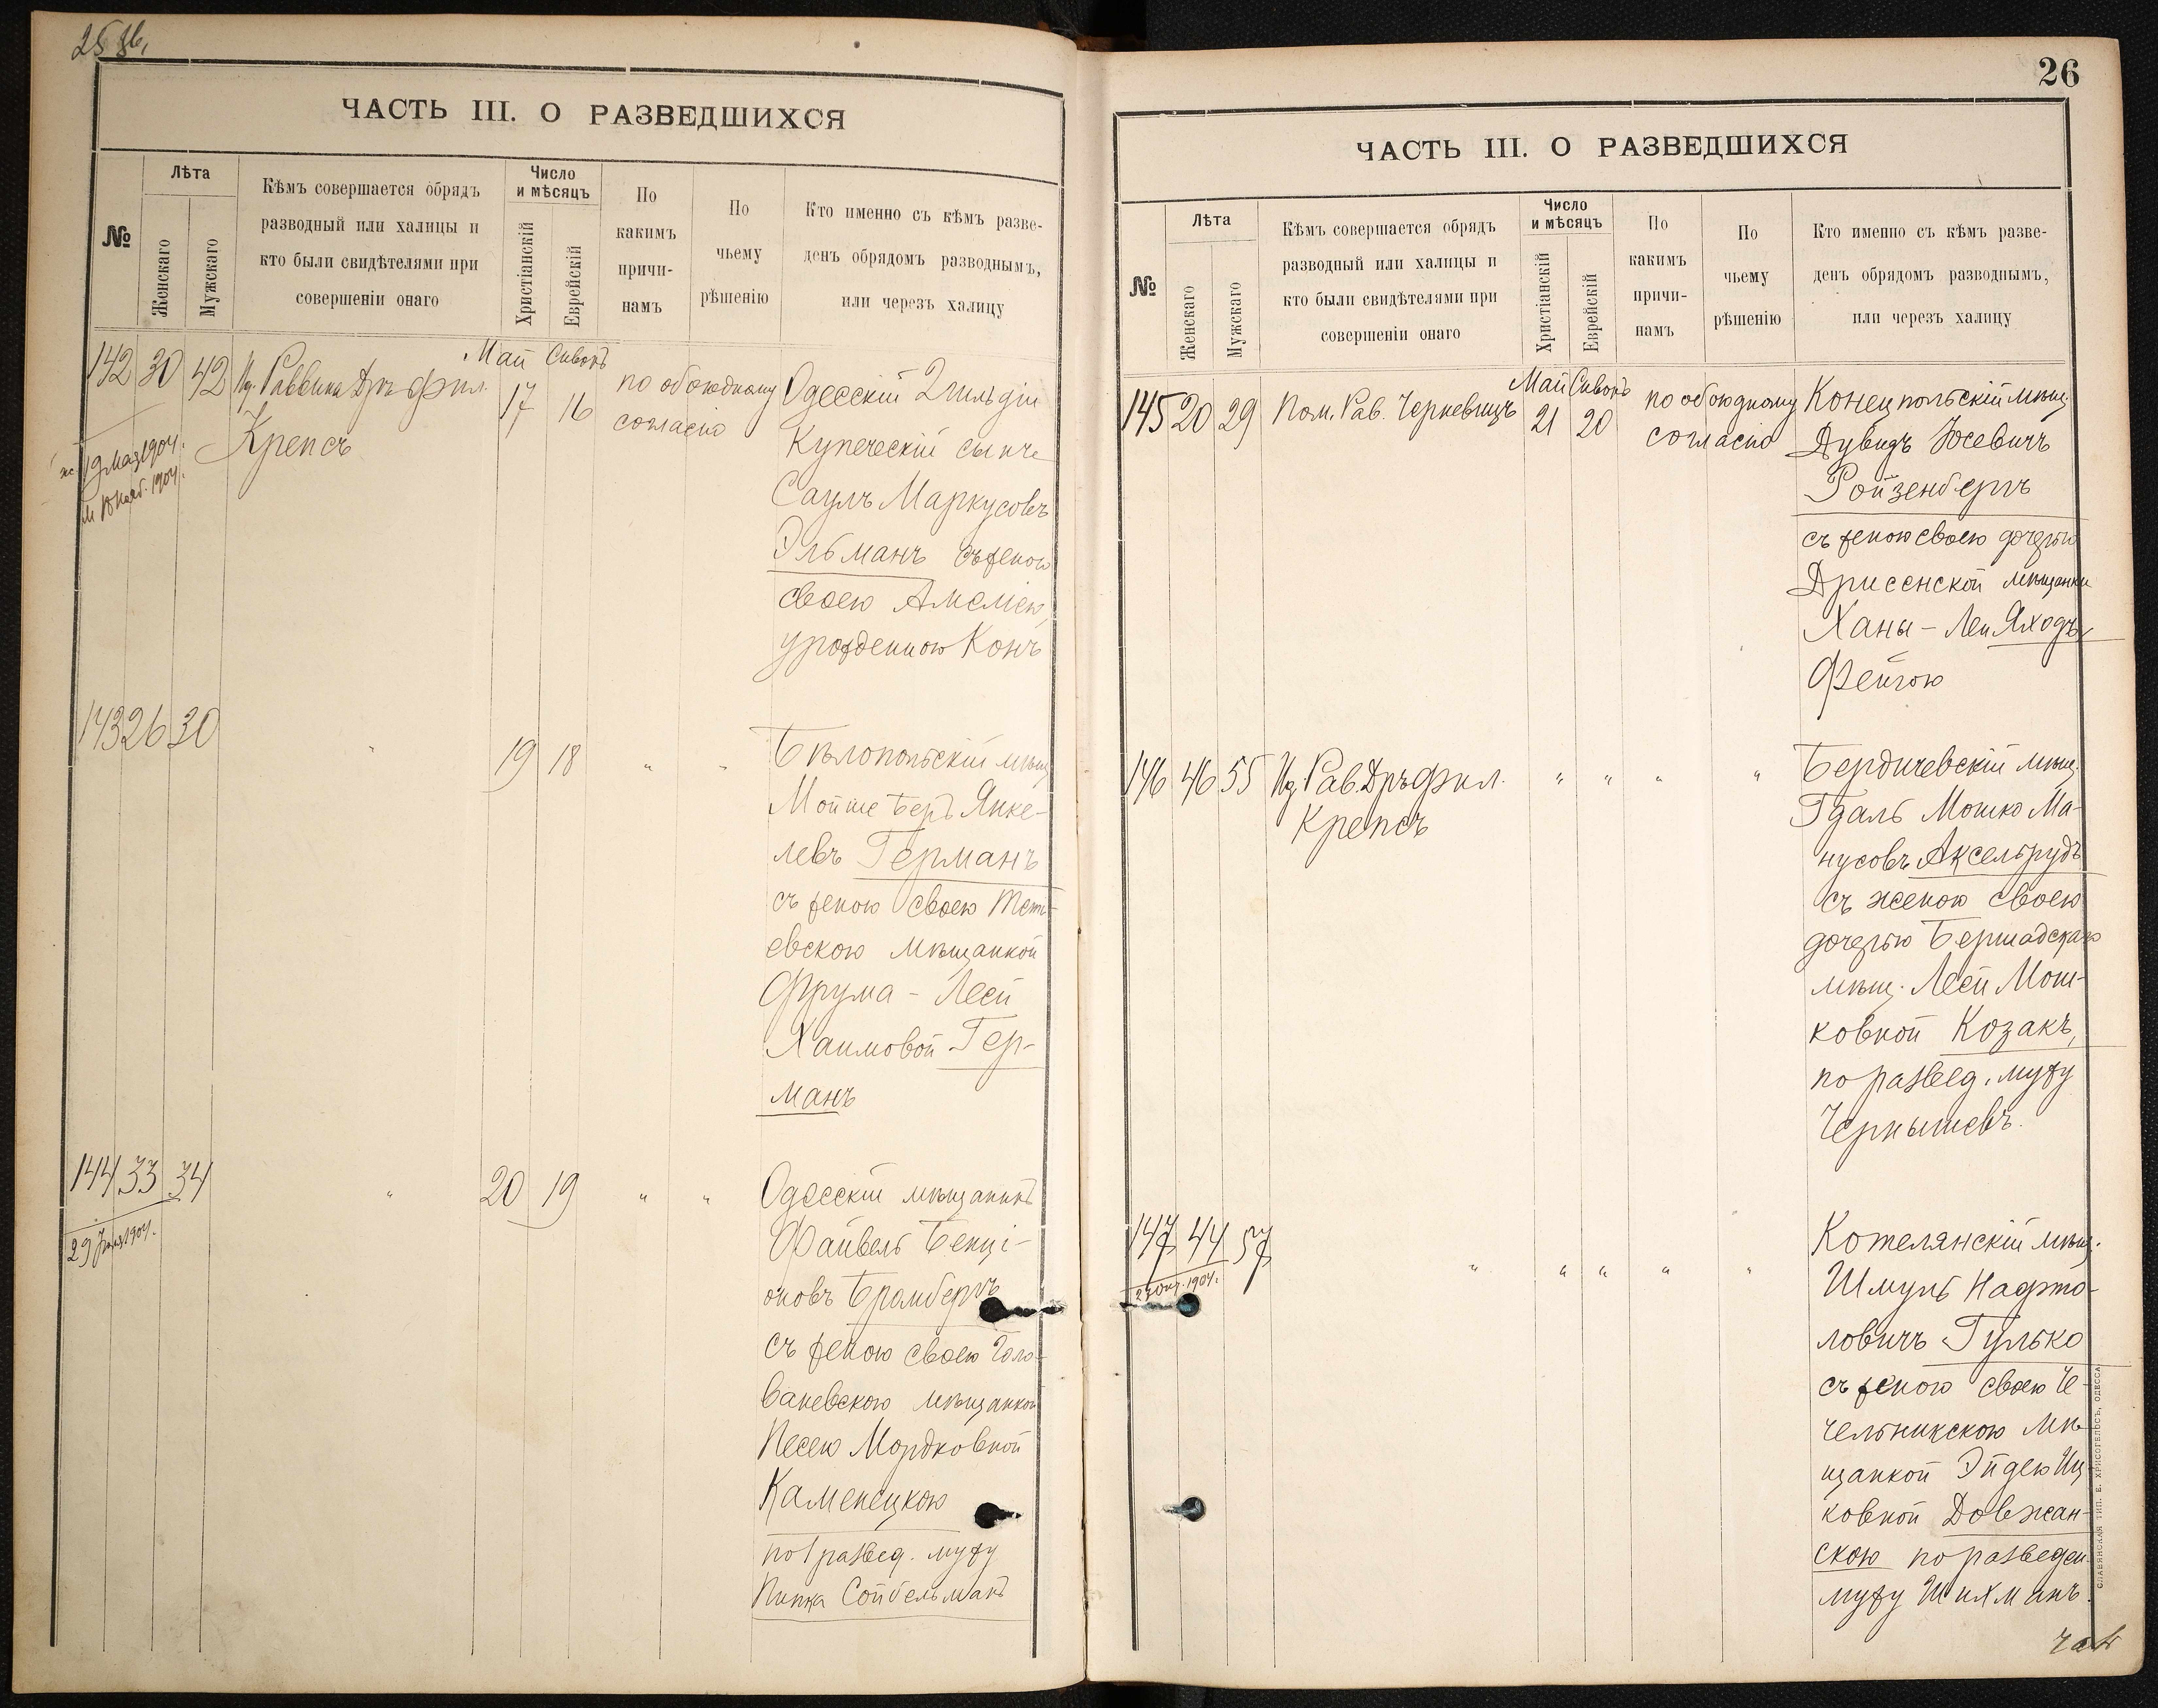 ЧАСТЬ III. О РАЗВЕДШИХСЯ
№
Лѣта
Женскаго
Мужскаго
Кѣмъ совершается обрядъ
разводный или халицы и
кто были свидѣтелями при
совершеніи онаго
Число
и мѣсяцъ
Христіанскій
Еврейскій
По
какимъ
причи-
намъ
По
чьему
рѣшенію
Кто именно съ кѣмъ разве-
денъ обрядомъ разводнымъ,
или черезъ халицу
142 30 42
Раввина Дръ Фил.
Крепсъ
Май Сивонъ
17 16
по обоюдному
согласію
19 мая 1904.
1904.
Одесскій 2 гильдіи
Купеческій сынъ
Саулъ Маркусовъ
Эльманъ съ женою
своею Амеліею,
урожденною Конъ
143 26 30
" 19 18 " "
Бѣлопольскій мѣщ.
Мойше Беръ Янке-
левъ Германъ
съ женою своею Тети-
евскою мѣщанкой
Фрума - Леей
Хаимовой Гер-
манъ
144 33 34
29 1904.
" 20 19 " "
Одесскій мѣщанинъ
Файвель Бенці-
оновъ Брамбергъ
съ женою своею Голо-
ваневскою мѣщанкой
Песею Мордковной
Каменецкою
по развед. мужу
Сойбельманъ
26
ЧАСТЬ III. О РАЗВЕДШИХСЯ
№
Лѣта
Женскаго
Мужскаго
Кѣмъ совершается обрядъ
разводный или халицы и
кто были свидѣтелями при
совершеніи онаго
Число
и мѣсяцъ
Христіанскій
Еврейскій
По
какимъ
причи-
намъ
По
чьему
рѣшенію
Кто именно съ кѣмъ разве-
денъ обрядомъ разводнымъ,
или черезъ халицу
145 20 29
Пом. Рав. Черкевицъ
Май Сивонъ
21 20
по обоюдному
согласію
Конецпольскій мѣщ.
Дувидъ Іосевичъ
Ройзенбергъ
съ женою своею дочерью
Дрисенской мѣщанки
Ханы - Леи Яходъ,
Фейгою
146 46 55
Рав. Дръ Фил.
Крепсъ
" " " "
Бердичевскій мѣщ.
Гдаль Мошко Ма-
нусовъ Аксельрудъ
съ женою своею
дочерью Бершадскаго
мѣщ. Леей Мош-
ковной Козакъ,
по развед. мужу
Чернышевъ.
147 44 57
1904.
" " " " "
Котелянскій мѣщ.
Шмуль Нафто-
ловичъ Гулько
съ женою своею Че-
чельникскою мѣ-
щанкой Эйдею Иц-
ковной Довжан-
скою по разведен.
мужу Шихманъ.
СЛАВЯНСКАЯ ТИП. Е. ХРИСОГЕЛОСЪ, ОДЕССА